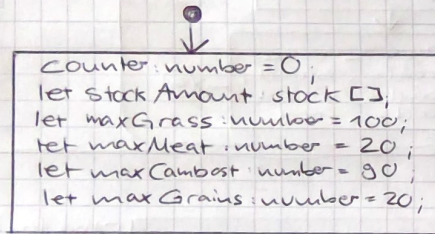 counter: number = 0;
let stockAmount: stock [];
let maxGrass: number = 100;
let maxMeat: number = 20;
let maxCambost: number = 90;
let maxGrains: number = 20;